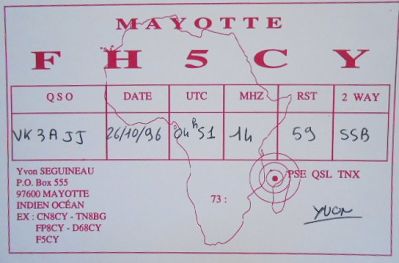 MAYOTTE
F H 5 C Y
QSO DATE UTC MHZ RST 2 WAY
VK3AJJ 26/10/96 04h51 14 59 SSB
Yvon SEGUINEAU
P.O. Box 555
97600 MAYOTTE
INDIEN OCÉAN
EX : CN8CY - TN8BG
FP8CY - D68CY
F5CY
73 :
PSE QSL TNX
YVON